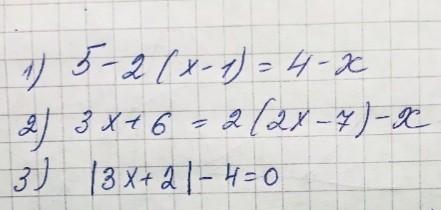 1) 5 - 2 (x - 1) = 4 - x
2) 3x + 6 = 2 (2x - 7) - x
3) |3x + 2| - 4 = 0